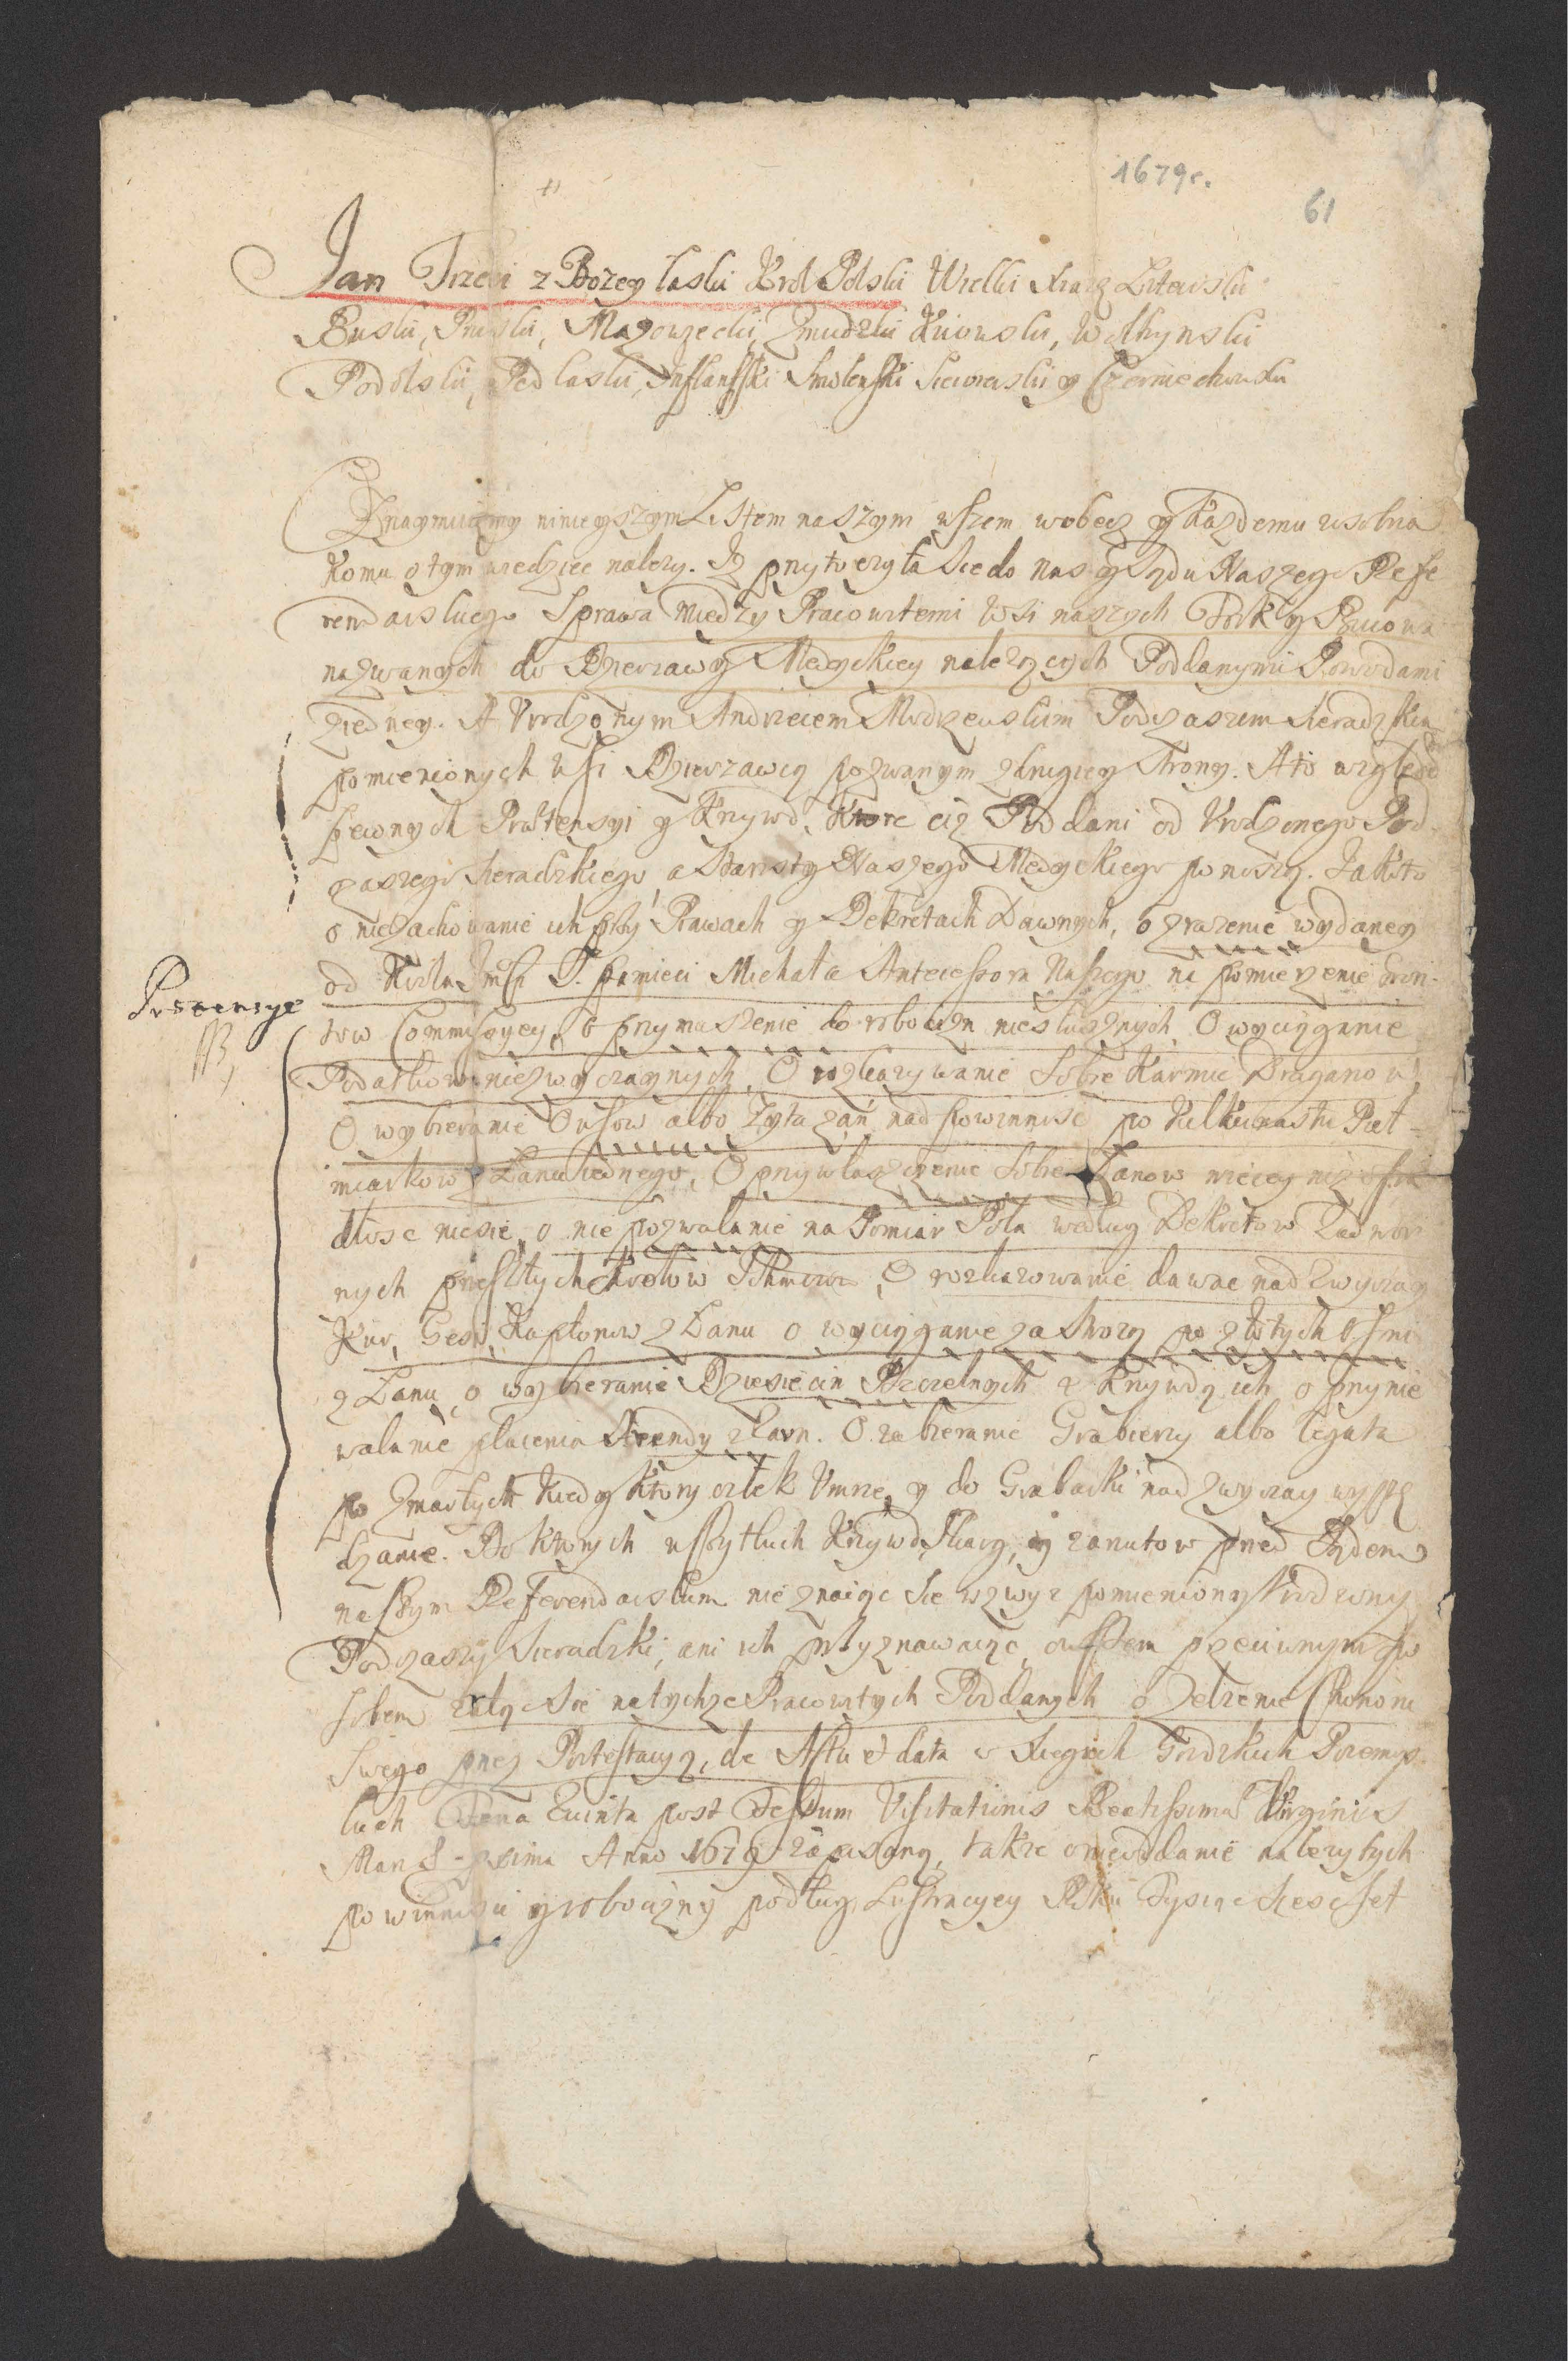 1679r.
61
Jan Trzeci z Bozey laski Krol Polski Wielki Xiąz Litewski
Ruski, Pruski, Mazowiecki, Zmudzki Kiiowski, Wołhynski
Podolski, Podlaski, Inflantski Smolenski Siewierski y Czerniechowski
Oznaymuiemy ninieyszym Listem naszym wszem wobec y Kazdemu zosobna
Komu o tym wiedziec nalezy. Iz przytoczyła sie do nas y Sądu Naszego Refe
rendarskiego Sprawa między Pracowitemi Wsi naszych y
nazwanych do Dzierzawy Medyckiey nalezących Poddanymi Powodami
ziedney. A Vrodzonym Andrzeiem Modrzewskim Podczaszem Sieradzkim
pomienionych wsi Dzierzawcą pozwanym zdrugiey strony. A to względem
pewnych Praetensyi y Krzywd, Ktore ciz Poddani od Vrodzonego Pod
czaszego Sieradzkiego, a Starosty Naszego Medyckiego ponoszą. Iakoto
o niezachowanie ich przy Prawach y Dekretach Dawnych, o zrazenie wydaney
od Krola Jmsci S. pamieci Michała Antecessora Naszego na pomierzenie Grun
Praetensye
tow Commissyey, o przymuszenie do robocizn niesłusznych, O wyciąganie
Podatkow niezwyczaynych, O rozkazywanie sobie Karmic Draganow
O wybieranie Owsow albo Zyta zań nad powinnosc po Kilkunastu Puł
miarkow z Łanu iednego, O przywłaszczenie sobie Łanow wiecey niz osia
dłosc niesie, o nie pozwalanie na Pomiar Pola według Dekretow Zadwor
nych przeszłych Krolow Ichmciow, O rozkazowanie dawac nad zwyczay
Kur, Gesi, Kapłonow z Łanu o wyciąganie za Strozą po złotych ośmi
z Łanu, o wybieranie Dziesiecin Pszczelnych z Krzywdą ich, o przynie
walanie płacenia Arendy z Karn. O zabieranie Grabiezy albo legata
po zmarłych Kiedy Ktory człek Vmrze, y do Grabarki nad zwyczay wypę
dzanie. Do Ktorych wszytkich Krzywd, Skarg, y zarzutow przed Sądem
naszym Referendarskim nie znaiąc sie wzwyz pomieniony Vrodzony
Podczaszy Sieradzki, ani ich przyznawaiąc, owszem przeciwnym spo
sobem załąc sie natychze Pracowitych Poddanych o zelzenie Honoru
swego przez Protestacyą, de Actu et data w Xięgach Grodzkich Przemys
kich Feria Quinta post Festum Visitationis Beatissimae Virginis
Mariae proxima Anno 1679 zapisaną, takze o nieoddanie nalezytych
powinnosci y robocizny podług Lustracyey Roku Tysiąc Szesc set